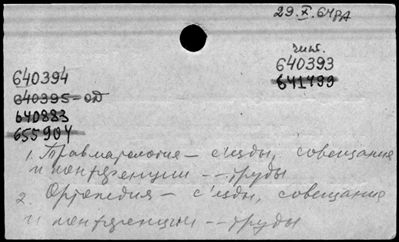 29.X.64 рд
чит.
640393
641499
640394
640395-од
640883
655904
1. Травматология — съезды, совещания
и конференции -- труды
2. Ортопедия — съезды, совещания
и конференции -- труды